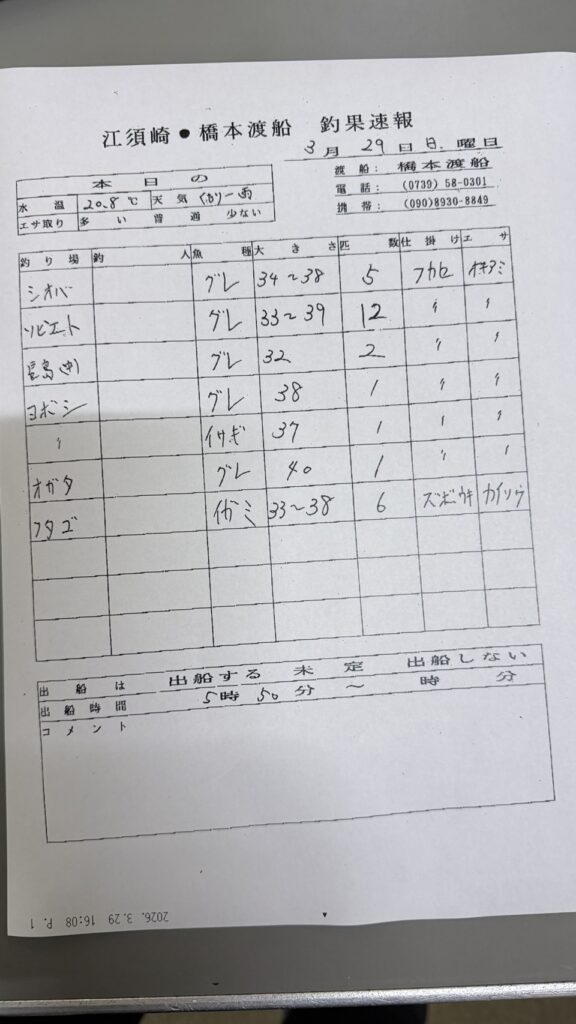 江須崎●橋本渡船 釣果速報
3月 29日 日.曜日
渡船: 橋本渡船
電話: (0739) 58-0301
携帯: (090)8930-8849
本日の
水温 20.8℃ 天気 くもり一雨
エサ取り 多い 普通 少ない
釣り場 釣人 魚種 大きさ 匹数 仕掛け エサ
シオバ グレ 34〜38 5 フカセ オキアミ
ソビエト グレ 33〜39 12 〃 〃
グレ 32 2 〃 〃
ヨボシ グレ 38 1 〃 〃
〃 イサギ 37 1 〃 〃
オガタ グレ 40 1 〃 〃
フタゴ イガミ 33〜38 6 ズボウキ カイソウ
出船は 出船する 未定 出船しない
出船時間 5時 50分 〜 時 分
コメント
2026. 3.29 16:08 P. 1